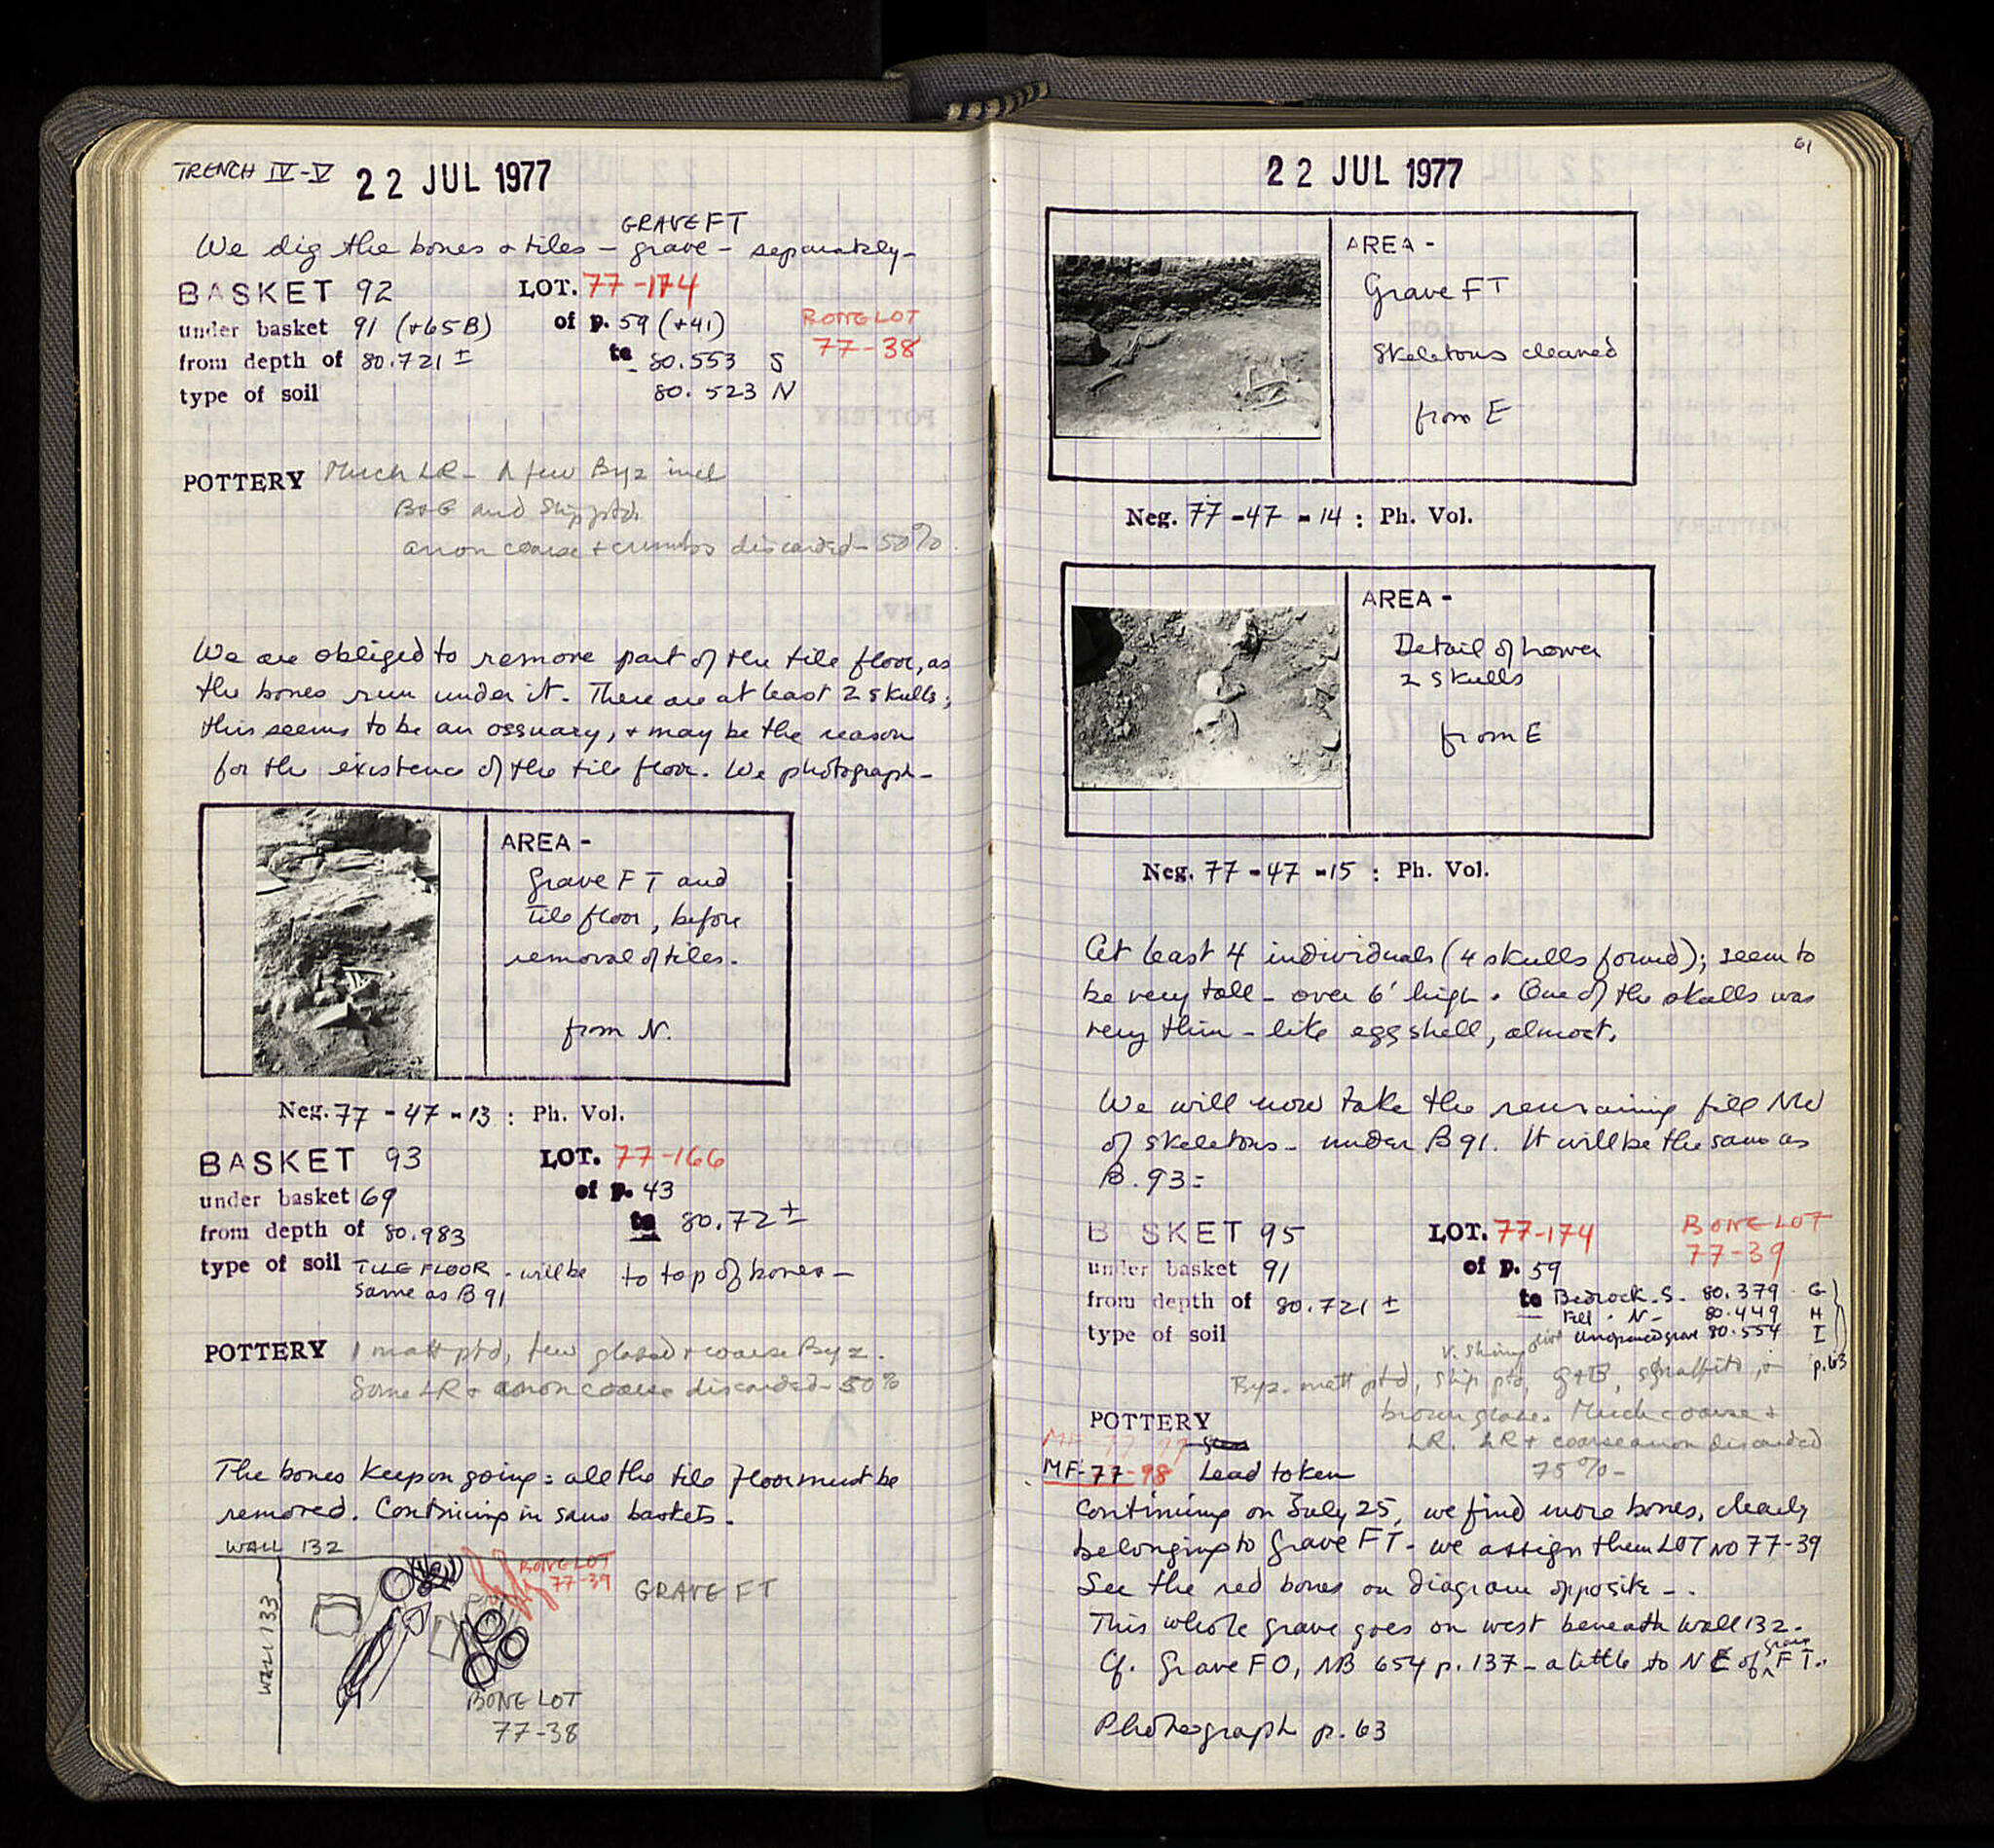 TRENCH IV-V 22 JUL 1977
GRAVE FT
We dig the bones + tiles – grave – separately –
BASKET 92 LOT. 77-174
under basket 91 (+65B) of p. 59 (+41) BONE LOT
from depth of 80.721 ± to 80.553 S 77-38
type of soil 80.523 N
POTTERY Much LR – A few Byz incl
B+G and Slip ptd
anon coarse + crumbs discarded – 50%
We are obliged to remove part of the tile floor, as
the bones run under it. There are at least 2 skulls;
this seems to be an ossuary, + may be the reason
for the existence of the tile floor. We photograph –
AREA -
Grave FT and
tile floor, before
removal of tiles.
from N.
Neg. 77-47-13 : Ph. Vol.
BASKET 93 LOT. 77-166
under basket 69 of p. 43
from depth of 80.983 to 80.72 ±
type of soil TILE FLOOR - will be to top of bones –
same as B 91
POTTERY 1 matt ptd, few glazed + coarse Byz.
Some LR + anon coarse discarded – 50%
The bones keep on going: all the tile floor must be
removed. Continuing in same baskets.
WALL 132
WALL 133
BONE LOT
77-39
GRAVE FT
BONE LOT
77-38
61
22 JUL 1977
AREA -
Grave FT
Skeletons cleaned
from E
Neg. 77-47-14 : Ph. Vol.
AREA -
Detail of Lower
2 skulls
from E
Neg. 77-47-15 : Ph. Vol.
At least 4 individuals (4 skulls found); seem to
be very tall – over 6' high. One of the skulls was
very thin – like egg shell, almost.
We will now take the remaining fill NW
of skeletons – under B 91. It will be the same as
B. 93:
BASKET 95 LOT. 77-174 BONE LOT
under basket 91 of p. 59 77-39
from depth of 80.721 ± to Bedrock - S - 80.379 G
Fill - N - 80.449 H
type of soil 80.554 I
p. 63
Byz. matt ptd, slip ptd, G+B, sgraffito, +
POTTERY brown glaze. Much coarse +
LR. LR + coarse anon discarded
75% –
MF-77-98 Lead token
Continuing on July 25, we find more bones, clearly
belonging to Grave FT – we assign them LOT NO 77-39
See the red bones on diagram opposite –.
This whole grave goes on west beneath Wall 132.
Cf. Grave FO, NB 654 p. 137 – a little to NE of grave FT.
Photograph p. 63